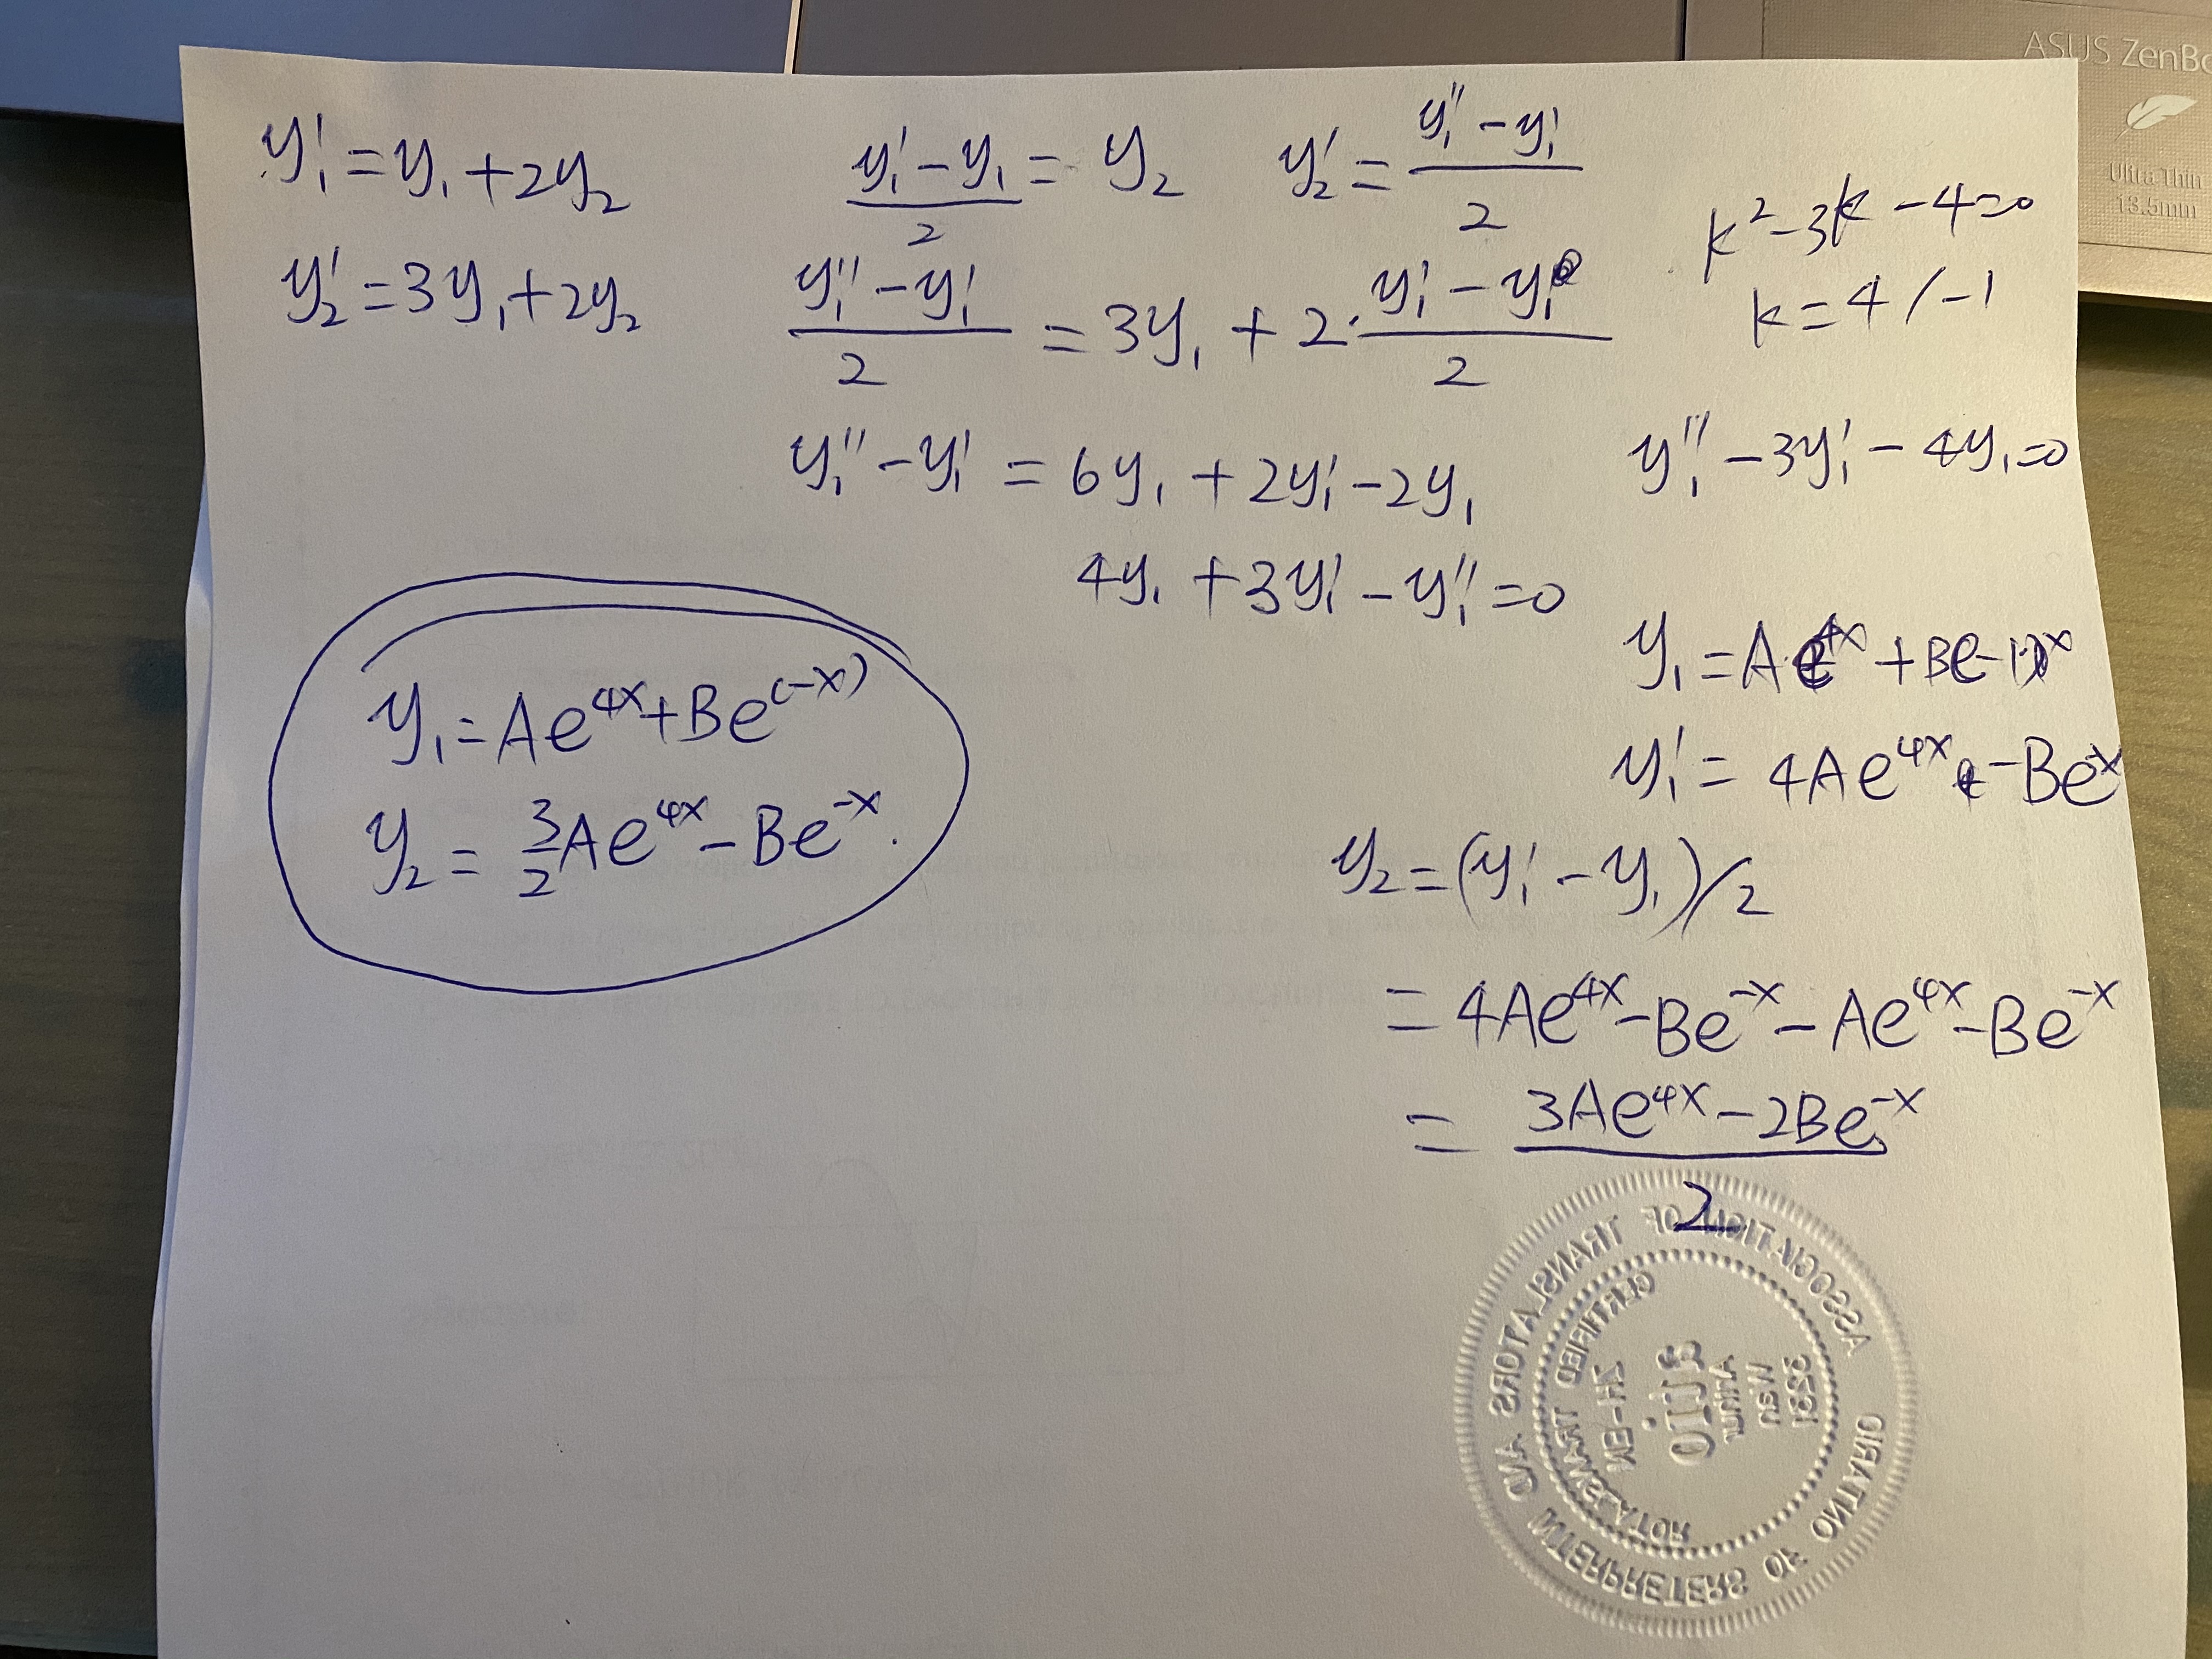 ASUS ZenBo
Ultra Thin
13.5mm
y₁' = y₁ + 2y₂
y₂' = 3y₁ + 2y₂
(y₁' - y₁)/2 = y₂
y₂' = (y₁'' - y₁')/2
(y₁'' - y₁')/2 = 3y₁ + 2·(y₁' - y₁)/2
y₁'' - y₁' = 6y₁ + 2y₁' - 2y₁
4y₁ + 3y₁' - y₁'' = 0
k² - 3k - 4 = 0
k = 4 / -1
y₁'' - 3y₁' - 4y₁ = 0
y₁ = Ae^4x + Be
y₁' = 4Ae^4x - Be^-x
y₂ = (y₁' - y₁)/2
= 4Ae^4x - Be^-x - Ae^4x - Be^-x
= (3Ae^4x - 2Be^-x)/2
y₁ = Ae^4x + Be^(-x)
y₂ = 3/2 Ae^4x - Be^-x.
ASSOCIATION OF TRANSLATORS AND INTERPRETERS OF ONTARIO
CERTIFIED TRANSLATOR
ZH-EN